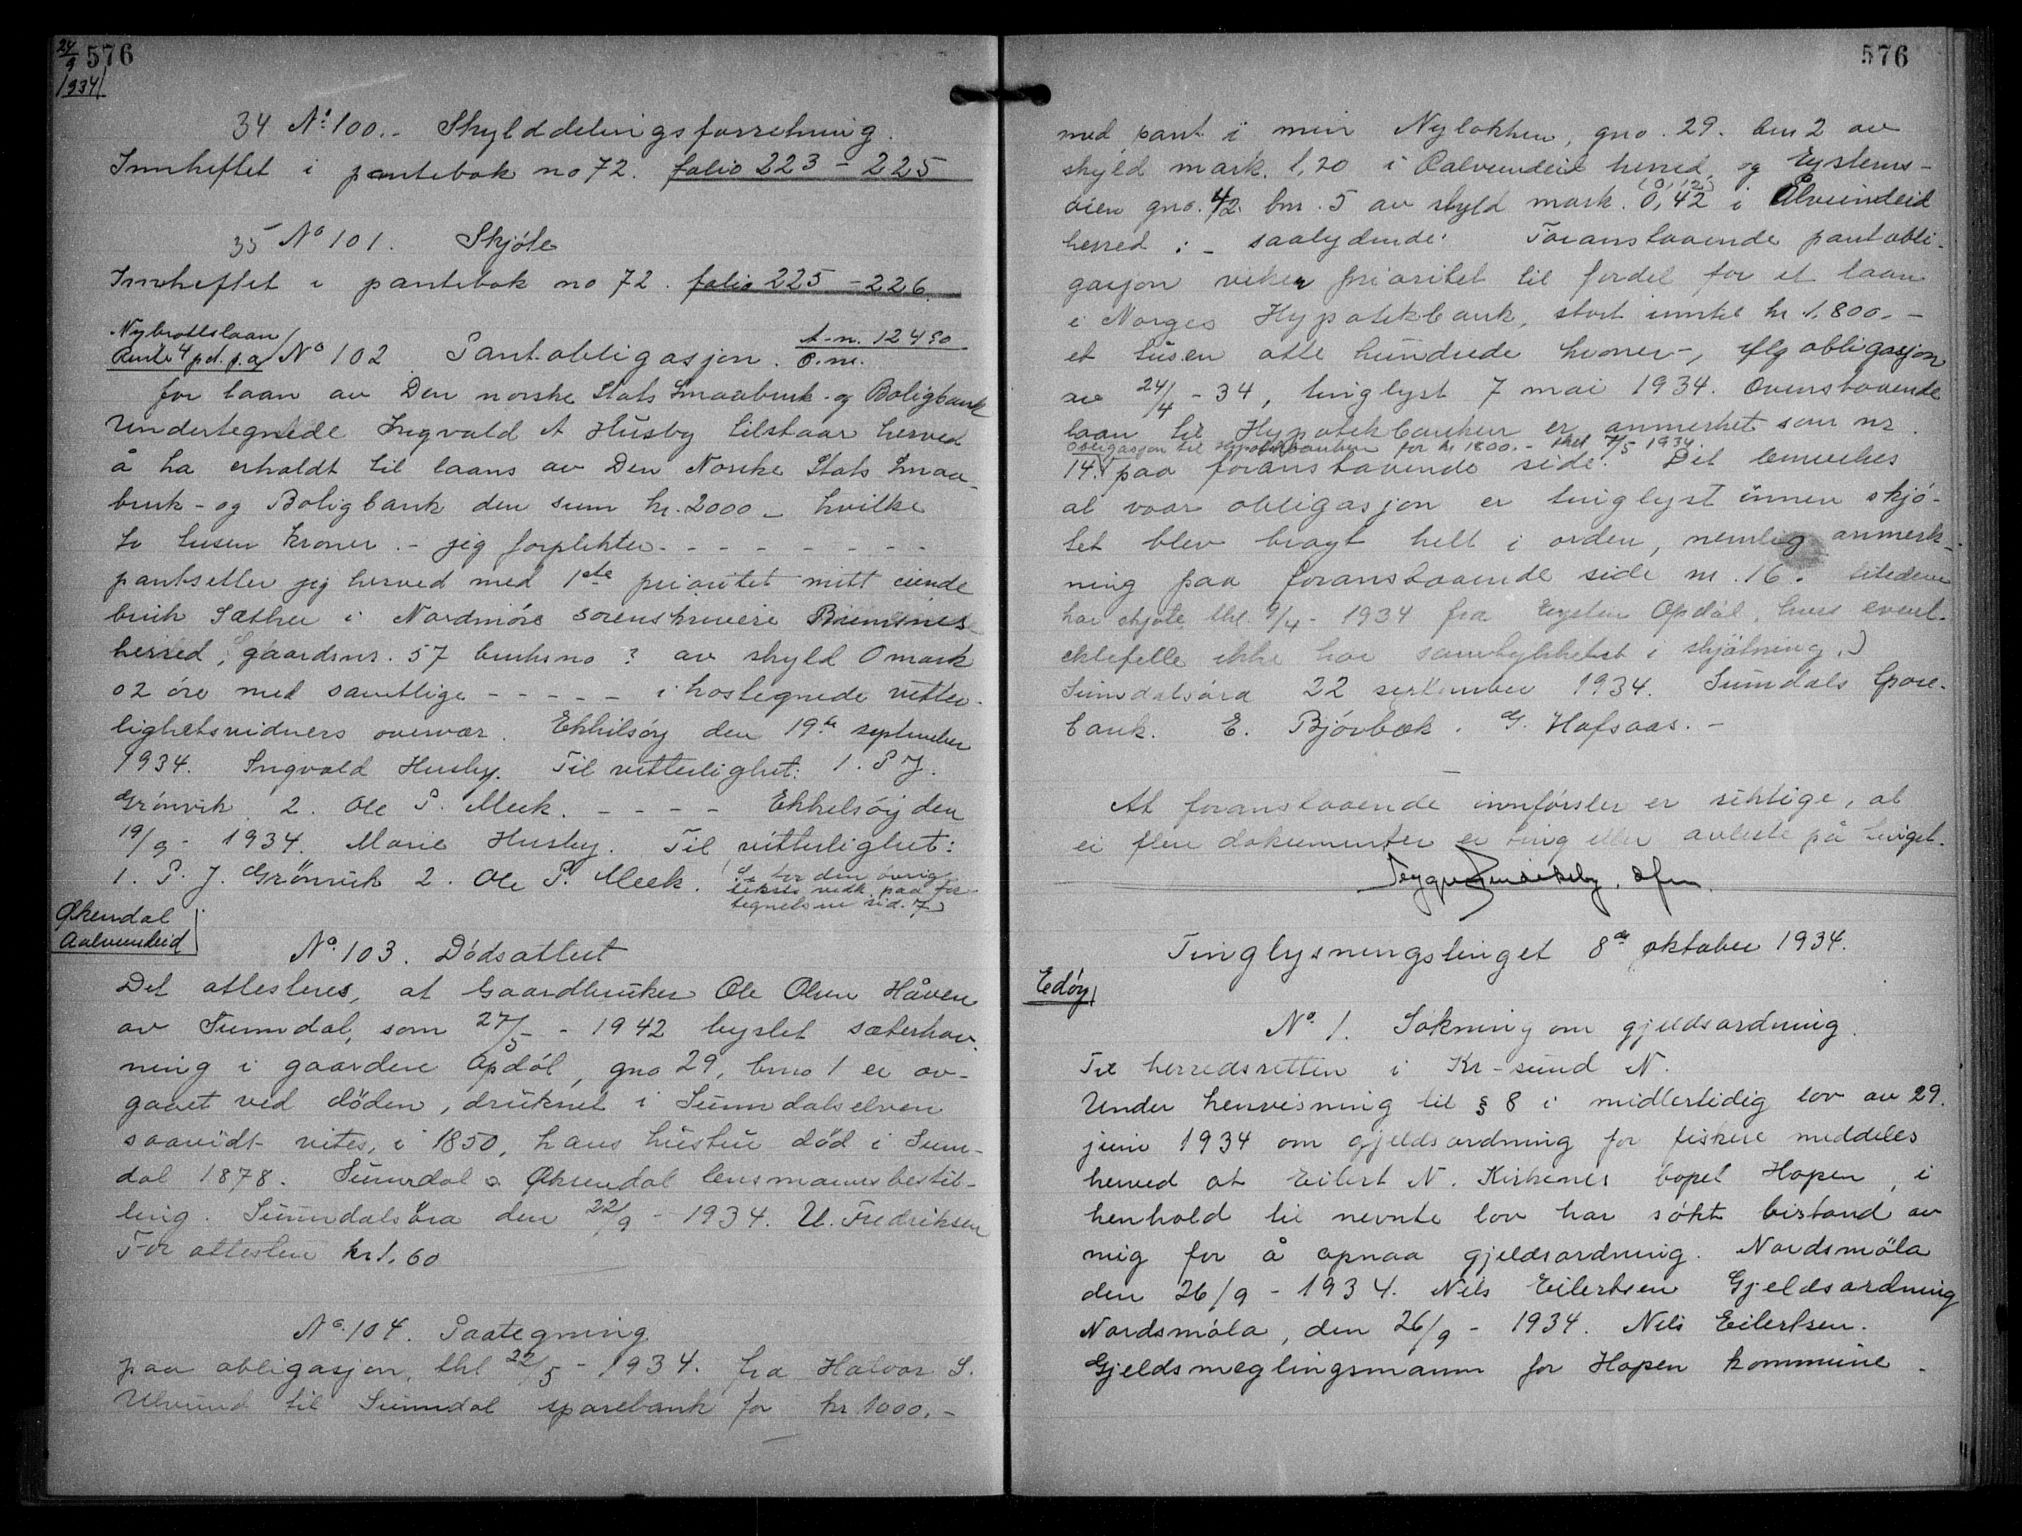 24/9 1934
576
34 No 100.- Skylddelingsforretning.
Innheftet i pantebok no 72. folio 223 - 225
35 No 101. Skjöte
Innheftet i pantebok no 72. folio 225 - 226.
Nybrottslaan
Rente 4 pct. p.a.
No 102 Pantobligasjon. A-n. 12490
O.nr.
for laan av Den norske Stats Smaabruk- og Boligbank
Undertegnede Ingvald A Husby tilstaar herved
å ha erholdt til laans av Den Norske Stats Smaa-
bruk- og Boligbank den sum kr. 2000 - hvilke
to tusen kroner.- jeg forplikter - - - - - - -
pantsetter jeg herved med 1ste prioritet mitt eiende
bruk Sæther i Nordmöre sorenskriveri Bremsnes
herred, gaardsnr. 57 bruksno ? av skyld 0 mark
02 öre med samtlige - - - - - i hostegnede vitter-
lighetsvidners overvær. Ekkilsöy den 19de september
1934. Ingvald Husby. Til vitterlighet: 1. P J.
Grönvik 2. Ole P. Meek. - - - - Ekkelsöy den
19/9 - 1934. Marie Husby. Til vitterlighet:
1. P. J. Grönvik 2. Ole P. Meek.
(Se for den övrige
teksts vedk. paa for-
tegnelsen sid. 7)
Økendal
Aalvundeid
No. 103. Dödsattest
Det attesteres, at Gaardbruker Ole Olsen Håven
av Sunndal, som 27/5 - 1942 lyslet sæterhav-
ning i gaarden Opdöl, gno 29, bno 1 er av-
gaaet ved döden, druknet i Sunndalselven
saavidt vites, i 1850, hans hustru död i Sunn-
dal 1878. Sunndal o Øksendal lensmannsbestil-
ling. Sunndalsöra den 22/9 - 1934. U. Fredriksen
For attesten kr 1,60
No. 104. Paategning
paa obligasjon, thl 22/5 - 1934. fra Halvor S.
Ulvund til Sunndal sparebank for kr 1000.-
576
med pant i min Nylökken, gno. 29. bnr 2 av
skyld mark. 1,20 i Aalvundeid herred, og Eystens-
öien gno. 42 bnr. 5 av skyld mark. 0,42 (0,12) i Ålvundeid
herred :- saalydende: Foranstaaende pantobli-
gasjon viker prioritet til fordel for et laan
i Norges Hypotekbank, stort inntil kr 1.800.-
et tusen otte hundrede kroner-, iflg obligasjon
av 24/4 - 34, tinglyst 7 mai 1934. Ovenstaaende
laan til Hypotekbanken er anmerket som nr.
Obligasjon til Hypotekbanken for kr 1800.- thl 7/5 1934.
14. paa foranstaaende side. Det bemerkes
at vaar obligasjon er tinglyst innen skjö-
tet blev bragt helt i orden, nemlig anmerk-
ning paa foranstaaende side nr. 16.
har skjöte thl. 9/4 - 1934 fra Eysten Opdöl, hvis event.
ektefelle ikke har samtykket i skjötning.)
Sunndalsöra 22 september 1934. Sunndals Spare-
bank. E. Bjövbek. G. Hafsaas.-
At foranstaaende innförsler er riktige, at
ei flere dokumenter er ting eller avleste på tinget.
Tinglysningstinget 8de oktober 1934.
Edöy
No. 1. Sökning om gjeldsordning.
Til herredsretten i Kr-sund N.
Under henvisning til § 8 i midlertidig lov av 29.
juni 1934 om gjeldsordning for fiskere meddeles
herved at Eilert N. Kirkenes bopel Hopen, i
henhold til nevnte lov har sökt bistand av
mig for å opnaa gjeldsordning. Nordsmöla
den 26/9 - 1934. Nils Eilertsen Gjeldsordning
Nordsmöla, den 26/9 - 1934. Nils Eilertsen.
Gjeldsmeglingsmann for Hopen kommune.